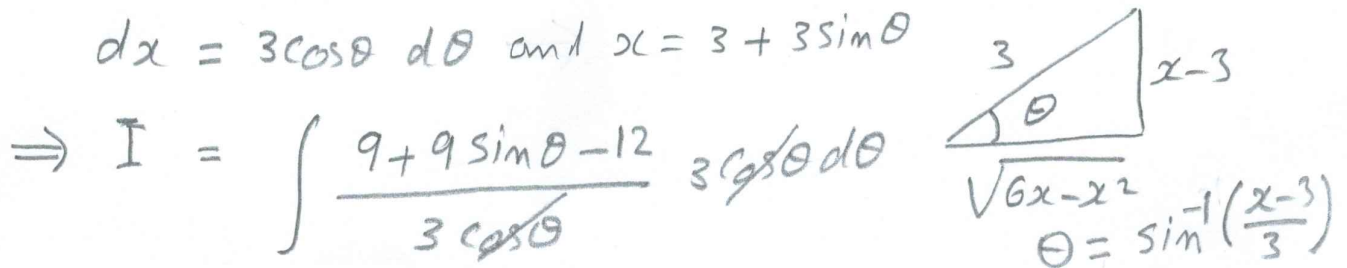 dx = 3cosθ dθ and x = 3 + 3sinθ
⇒ I = ∫ (9+9sinθ−12)/(3cosθ) 3cosθdθ
3
x−3
θ
√(6x−x²)
θ = sin⁻¹((x−3)/3)